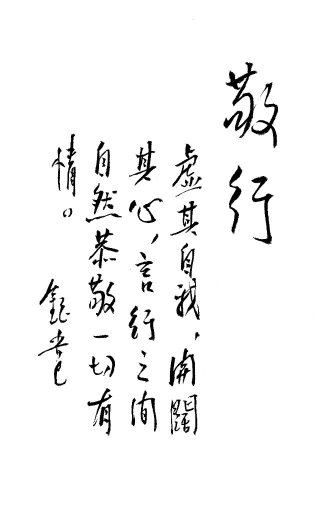 敬行
虛其自我，開闊
其心，言行之間
自然恭敬一切有
情。